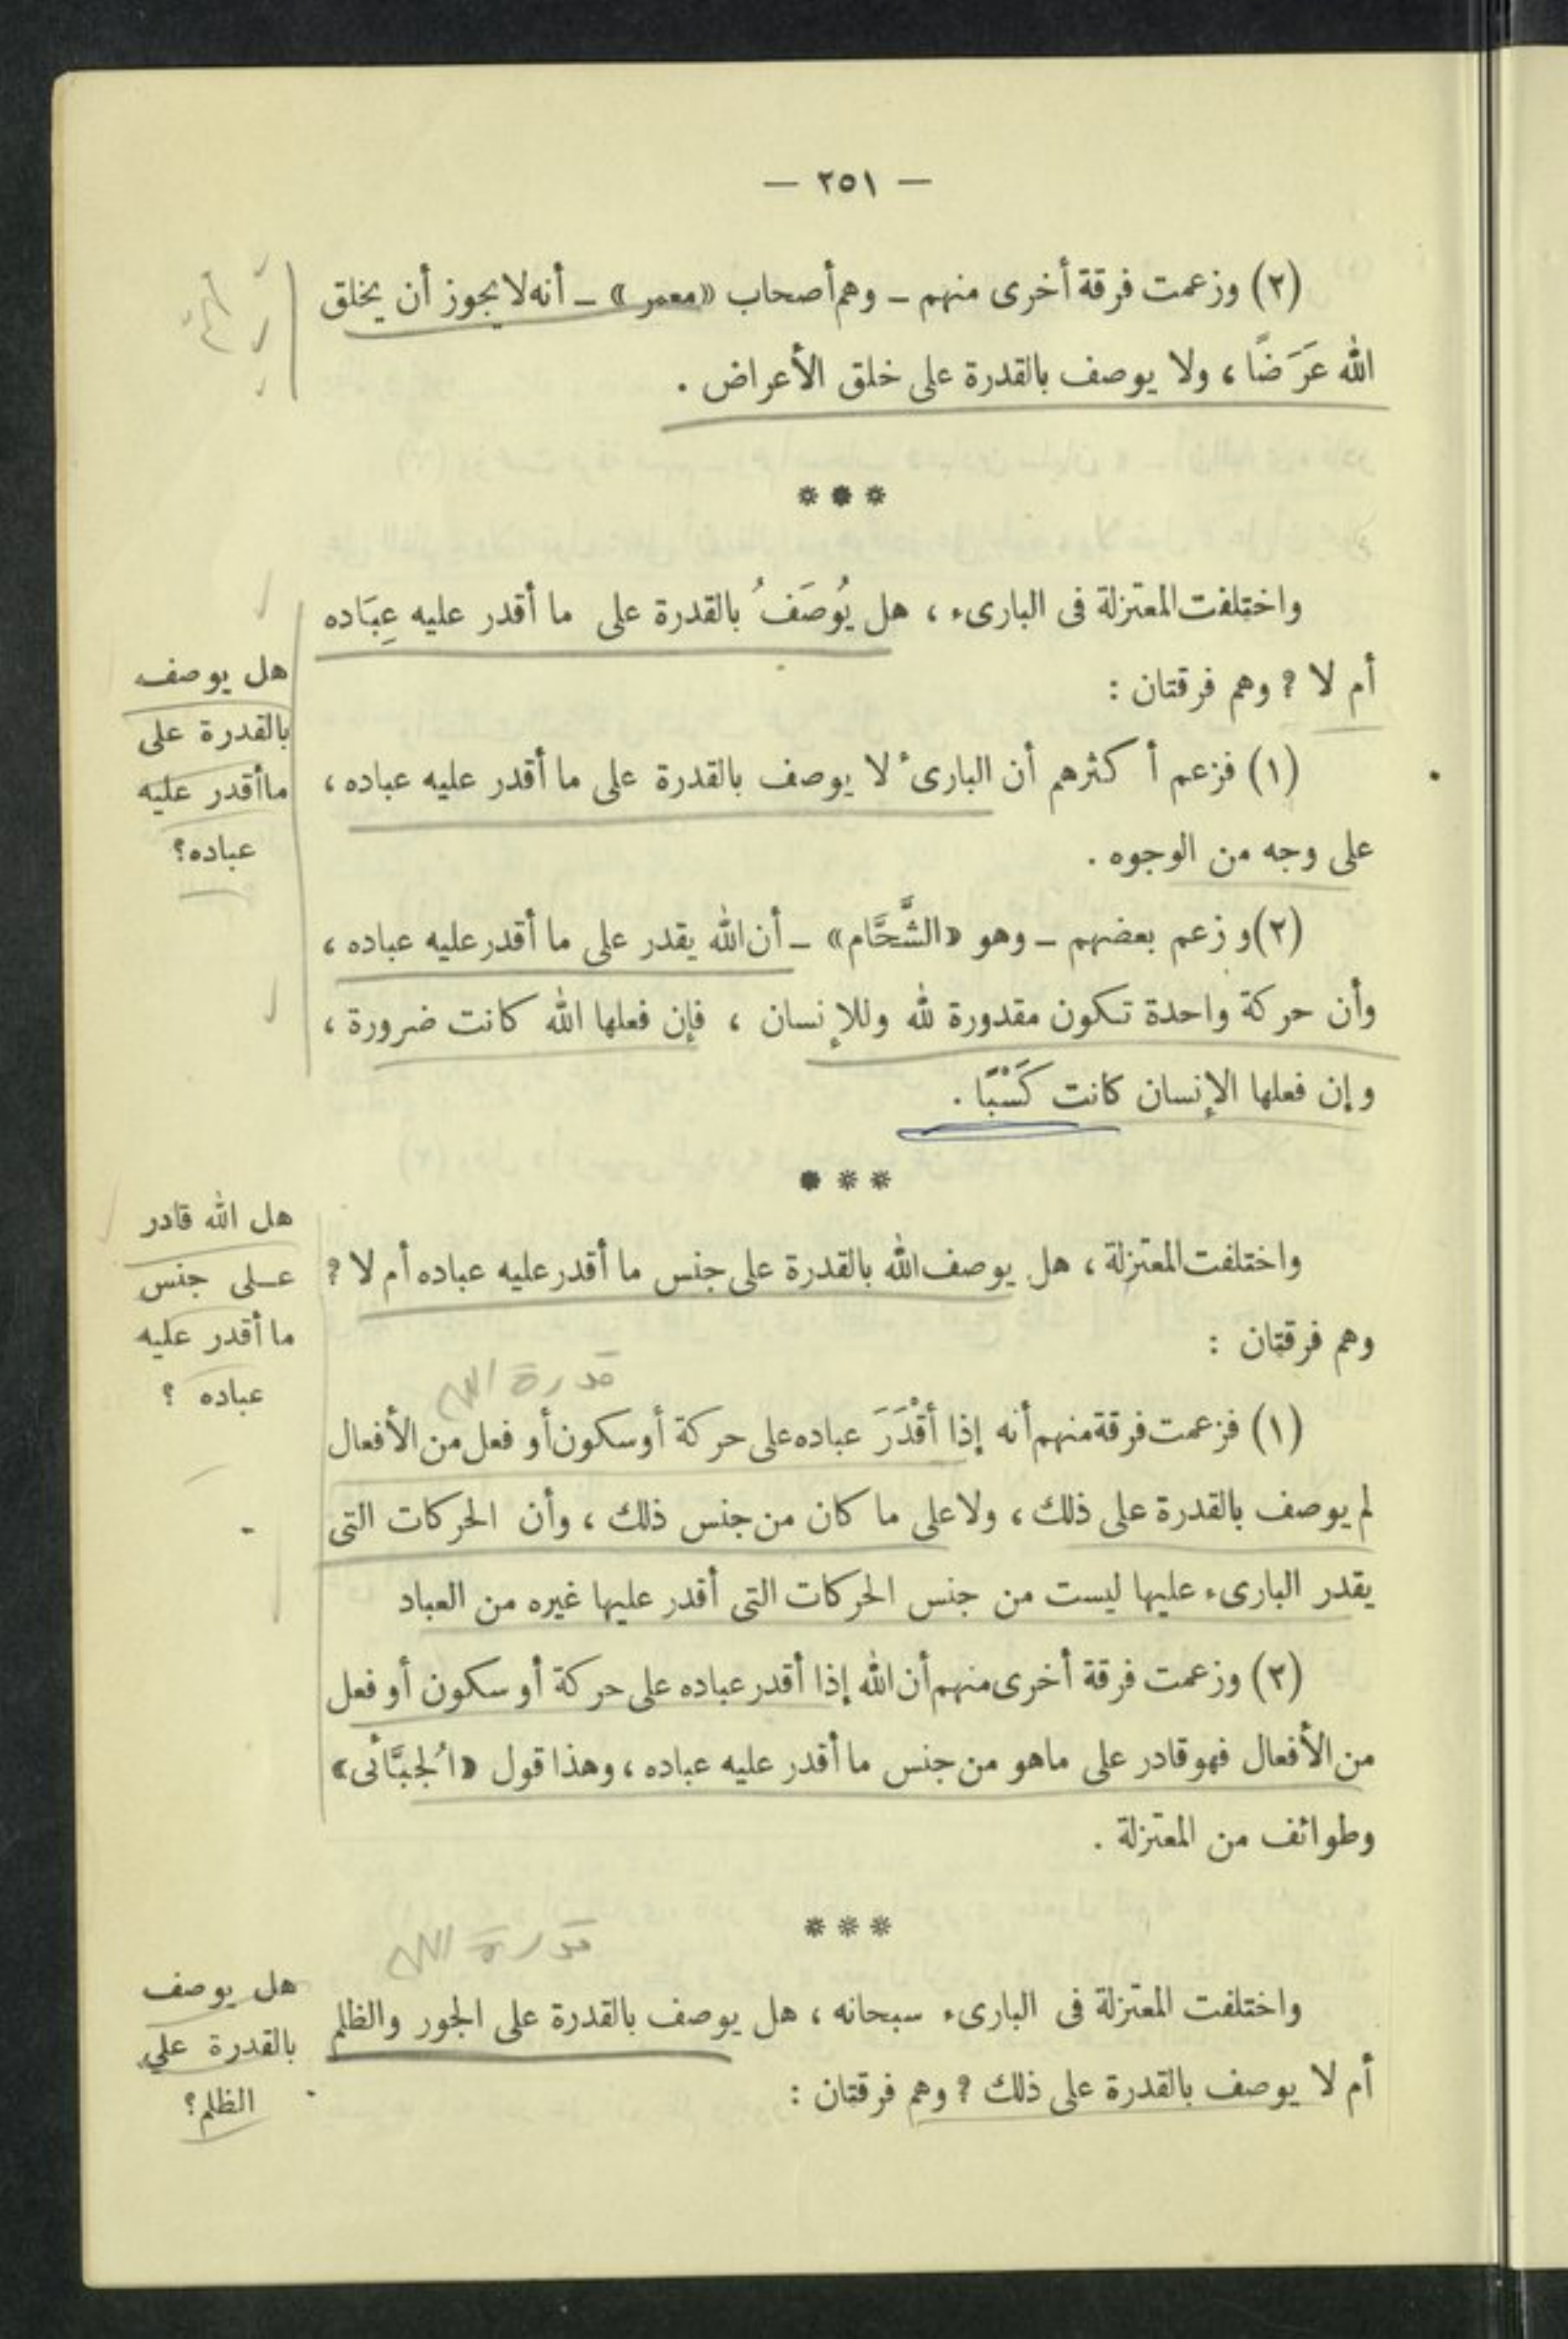 — ٢٥١ —
(٢) وزعمت فرقة أخرى منهم – وهم أصحاب «معمر» – أنه لا يجوز أن يخلق
الله عَرَضًا، ولا يوصف بالقدرة على خلق الأعراض .
***
واختلفت المعتزلة فى البارىء ، هل يُوصَفُ بالقدرة على ما أقدر عليه عِبَاده
أم لا ؟ وهم فرقتان :
هل يوصف
بالقدرة على
ما أقدر عليه
عباده؟
(١) فزعم أكثرهم أن البارىء لا يوصف بالقدرة على ما أقدر عليه عباده ،
على وجه من الوجوه .
(٢) وزعم بعضهم – وهو «الشَّحَّام» – أن الله يقدر على ما أقدر عليه عباده ،
وأن حركة واحدة تكون مقدورة لله وللإنسان ، فإن فعلها الله كانت ضرورة ،
وإن فعلها الإنسان كانت كَسْبًا .
***
هل الله قادر
على جنس
ما أقدر عليه
عباده ؟
واختلفت المعتزلة ، هل يوصف الله بالقدرة على جنس ما أقدر عليه عباده أم لا ؟
وهم فرقتان :
قدرة الله
(١) فزعمت فرقة منهم أنه إذا أقْدَرَ عباده على حركة أو سكون أو فعل من الأفعال
لم يوصف بالقدرة على ذلك ، ولا على ما كان من جنس ذلك ، وأن الحركات التى
يقدر البارىء عليها ليست من جنس الحركات التى أقدر عليها غيره من العباد
(٢) وزعمت فرقة أخرى منهم أن الله إذا أقدر عباده على حركة أو سكون أو فعل
من الأفعال فهو قادر على ماهو من جنس ما أقدر عليه عباده ، وهذا قول «الْجُبَّائى»
وطوائف من المعتزلة .
***
قدرة الله
هل يوصف
بالقدرة على
الظلم؟
واختلفت المعتزلة فى البارىء سبحانه ، هل يوصف بالقدرة على الجور والظلم
أم لا يوصف بالقدرة على ذلك ؟ وهم فرقتان :